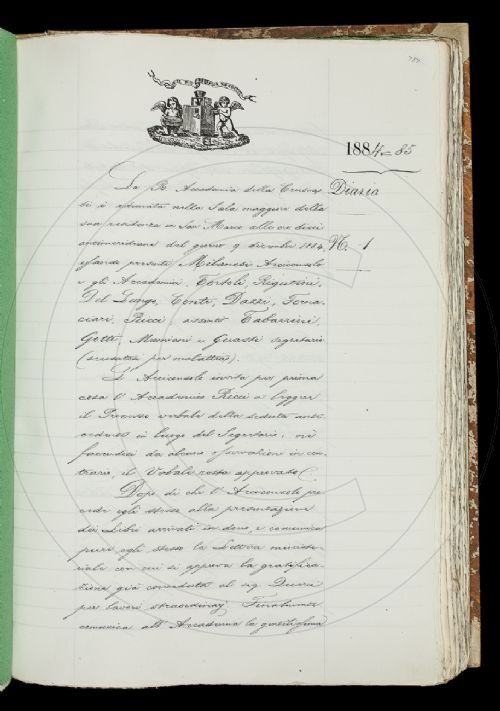 1884-85
Diario
N. 1
La R. Accademia della Crusca
si è adunata nella Sala maggiore della
sua residenza in San Marco alle ore dieci
antimeridiane del giorno 9 dicembre 1884,
essendo presenti Milanesi Arciconsolo
e gli Accademici, Tortoli, Rigutini,
Del Lungo, Conti, Dazzi, Forna-
ciari, Ricci, assenti Tabarrini,
Gotti, Mamiani e Guasti segretario
(assente per malattia).
L'Arciconsolo invita per prima
cosa l'Accademico Ricci a leggere
il Processo verbale della seduta ante-
cedente in luogo del Segretario; né
facendosi da alcuno osservazione in con-
trario, il Verbale resta approvato.
Dopo di che l'Arciconsolo pro-
cede egli stesso alla presentazione
dei Libri arrivati in dono, e comunica
pure egli stesso la Lettera ministe-
riale con cui si approva la gratifica-
zione già conceduta al sig.
per lavori straordinarj. Finalmente
comunica all'Accademia la